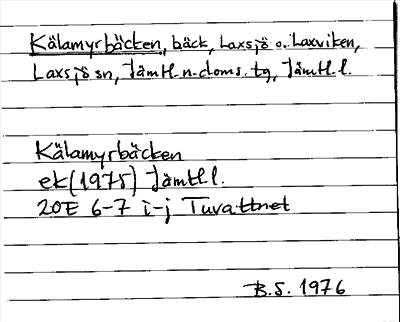 Kälamyrbäcken, bäck, Laxsjö o. Laxviken,
Laxsjö sn, Jämtl. n. doms. tg, Jämtl. l.
Kälamyrbäcken
ek (1975) Jämtl l.
20E 6-7 i-j Tuvattnet
B.S. 1976